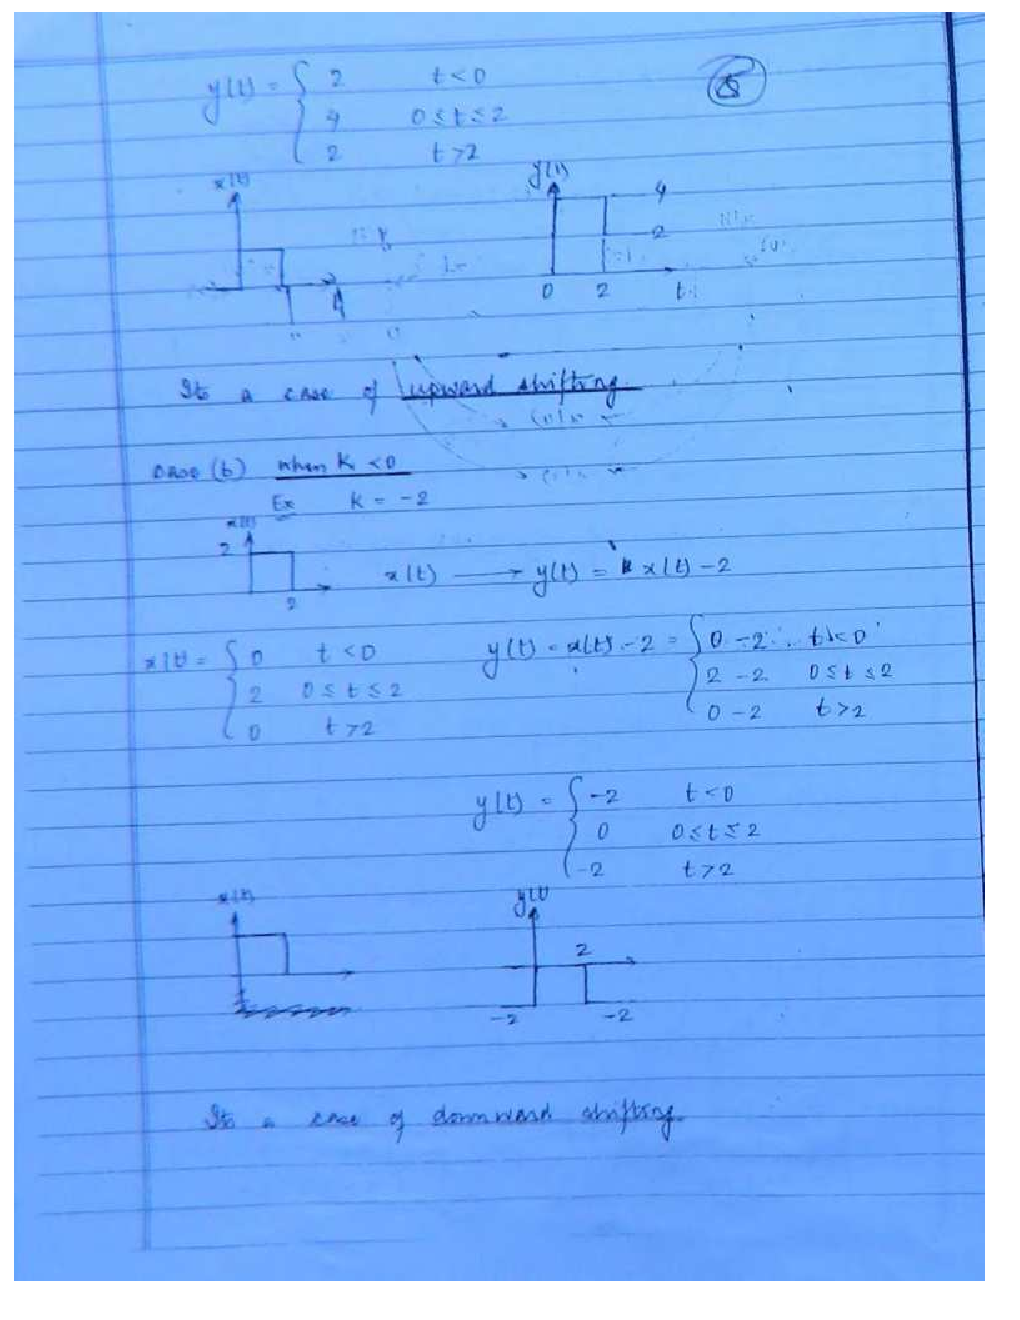 y(t) = { 2 t < 0
4 0 ≤ t ≤ 2
2 t > 2
x(t) y(t)
4
2
0 2 t
Its a case of upward shifting
case (b) when K < 0
Ex K = -2
x(t)
2
2
x(t) → y(t) = x(t) - 2
x(t) = { 0 t < 0 y(t) = x(t) - 2 = { 0 - 2 t < 0
2 0 ≤ t ≤ 2 2 - 2 0 ≤ t ≤ 2
0 t > 2 0 - 2 t > 2
y(t) = { -2 t < 0
0 0 ≤ t ≤ 2
-2 t > 2
x(t) y(t)
2
-2 -2
Its a case of downward shifting